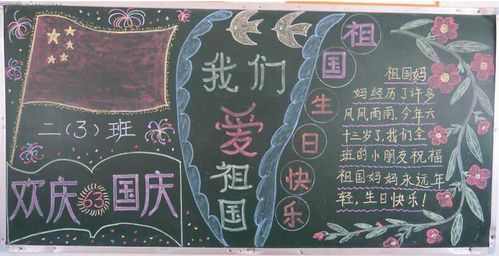 二(3)班
欢庆63国庆
我们
爱
祖国
祖国生日快乐
祖国妈
妈经历了许多
风风雨雨,今年六
十三岁了,我们全
班的小朋友祝福
祖国妈妈永远年
轻,生日快乐!